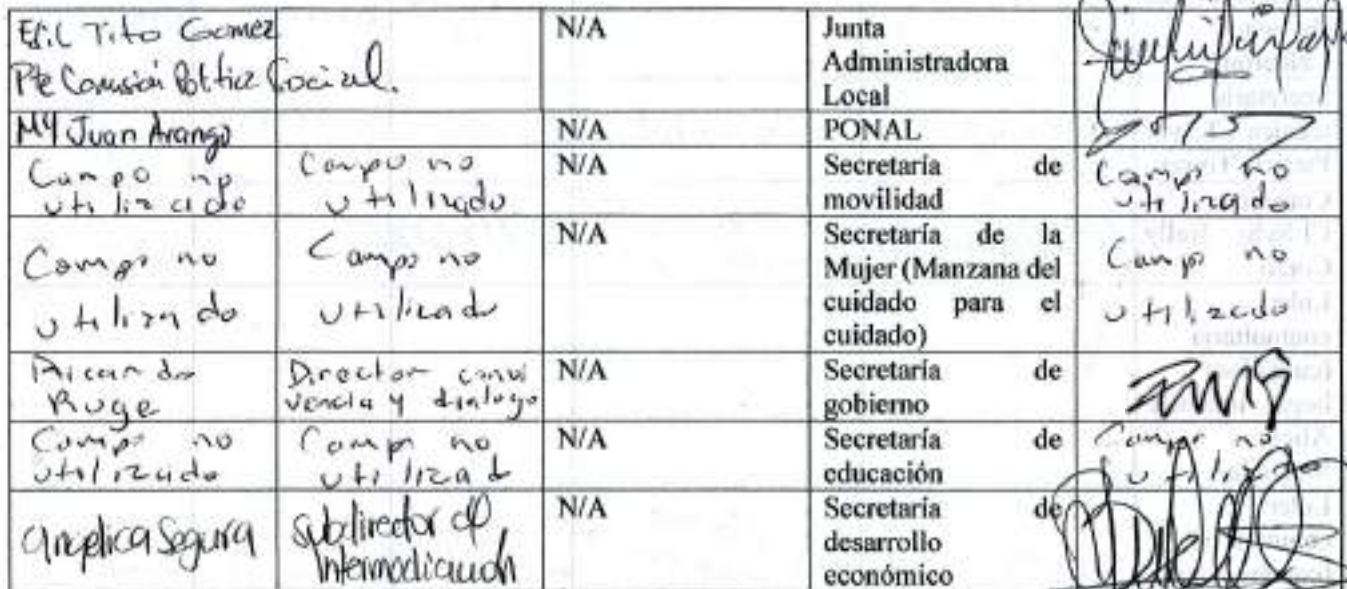 Tito Gomez
Pte Comisión Política Social.
N/A
Junta
Administradora
Local
MY Juan Arango
N/A
PONAL
Campo no
utilizado
Campo no
utilizado
N/A
Secretaría de
movilidad
Campo no
utilizado
Campo no
utilizado
Campo no
utilizado
N/A
Secretaría de la
Mujer (Manzana del
cuidado para el
cuidado)
Campo no
utilizado
Ricardo
Ruge
Director convi
vencia y dialogo
N/A
Secretaría de
gobierno
Campo no
utilizado
Campo no
utilizad
N/A
Secretaría de
educación
Campo no
utilizado
Angelica Segura
Subdirector
Intermediación
N/A
Secretaría de
desarrollo
económico